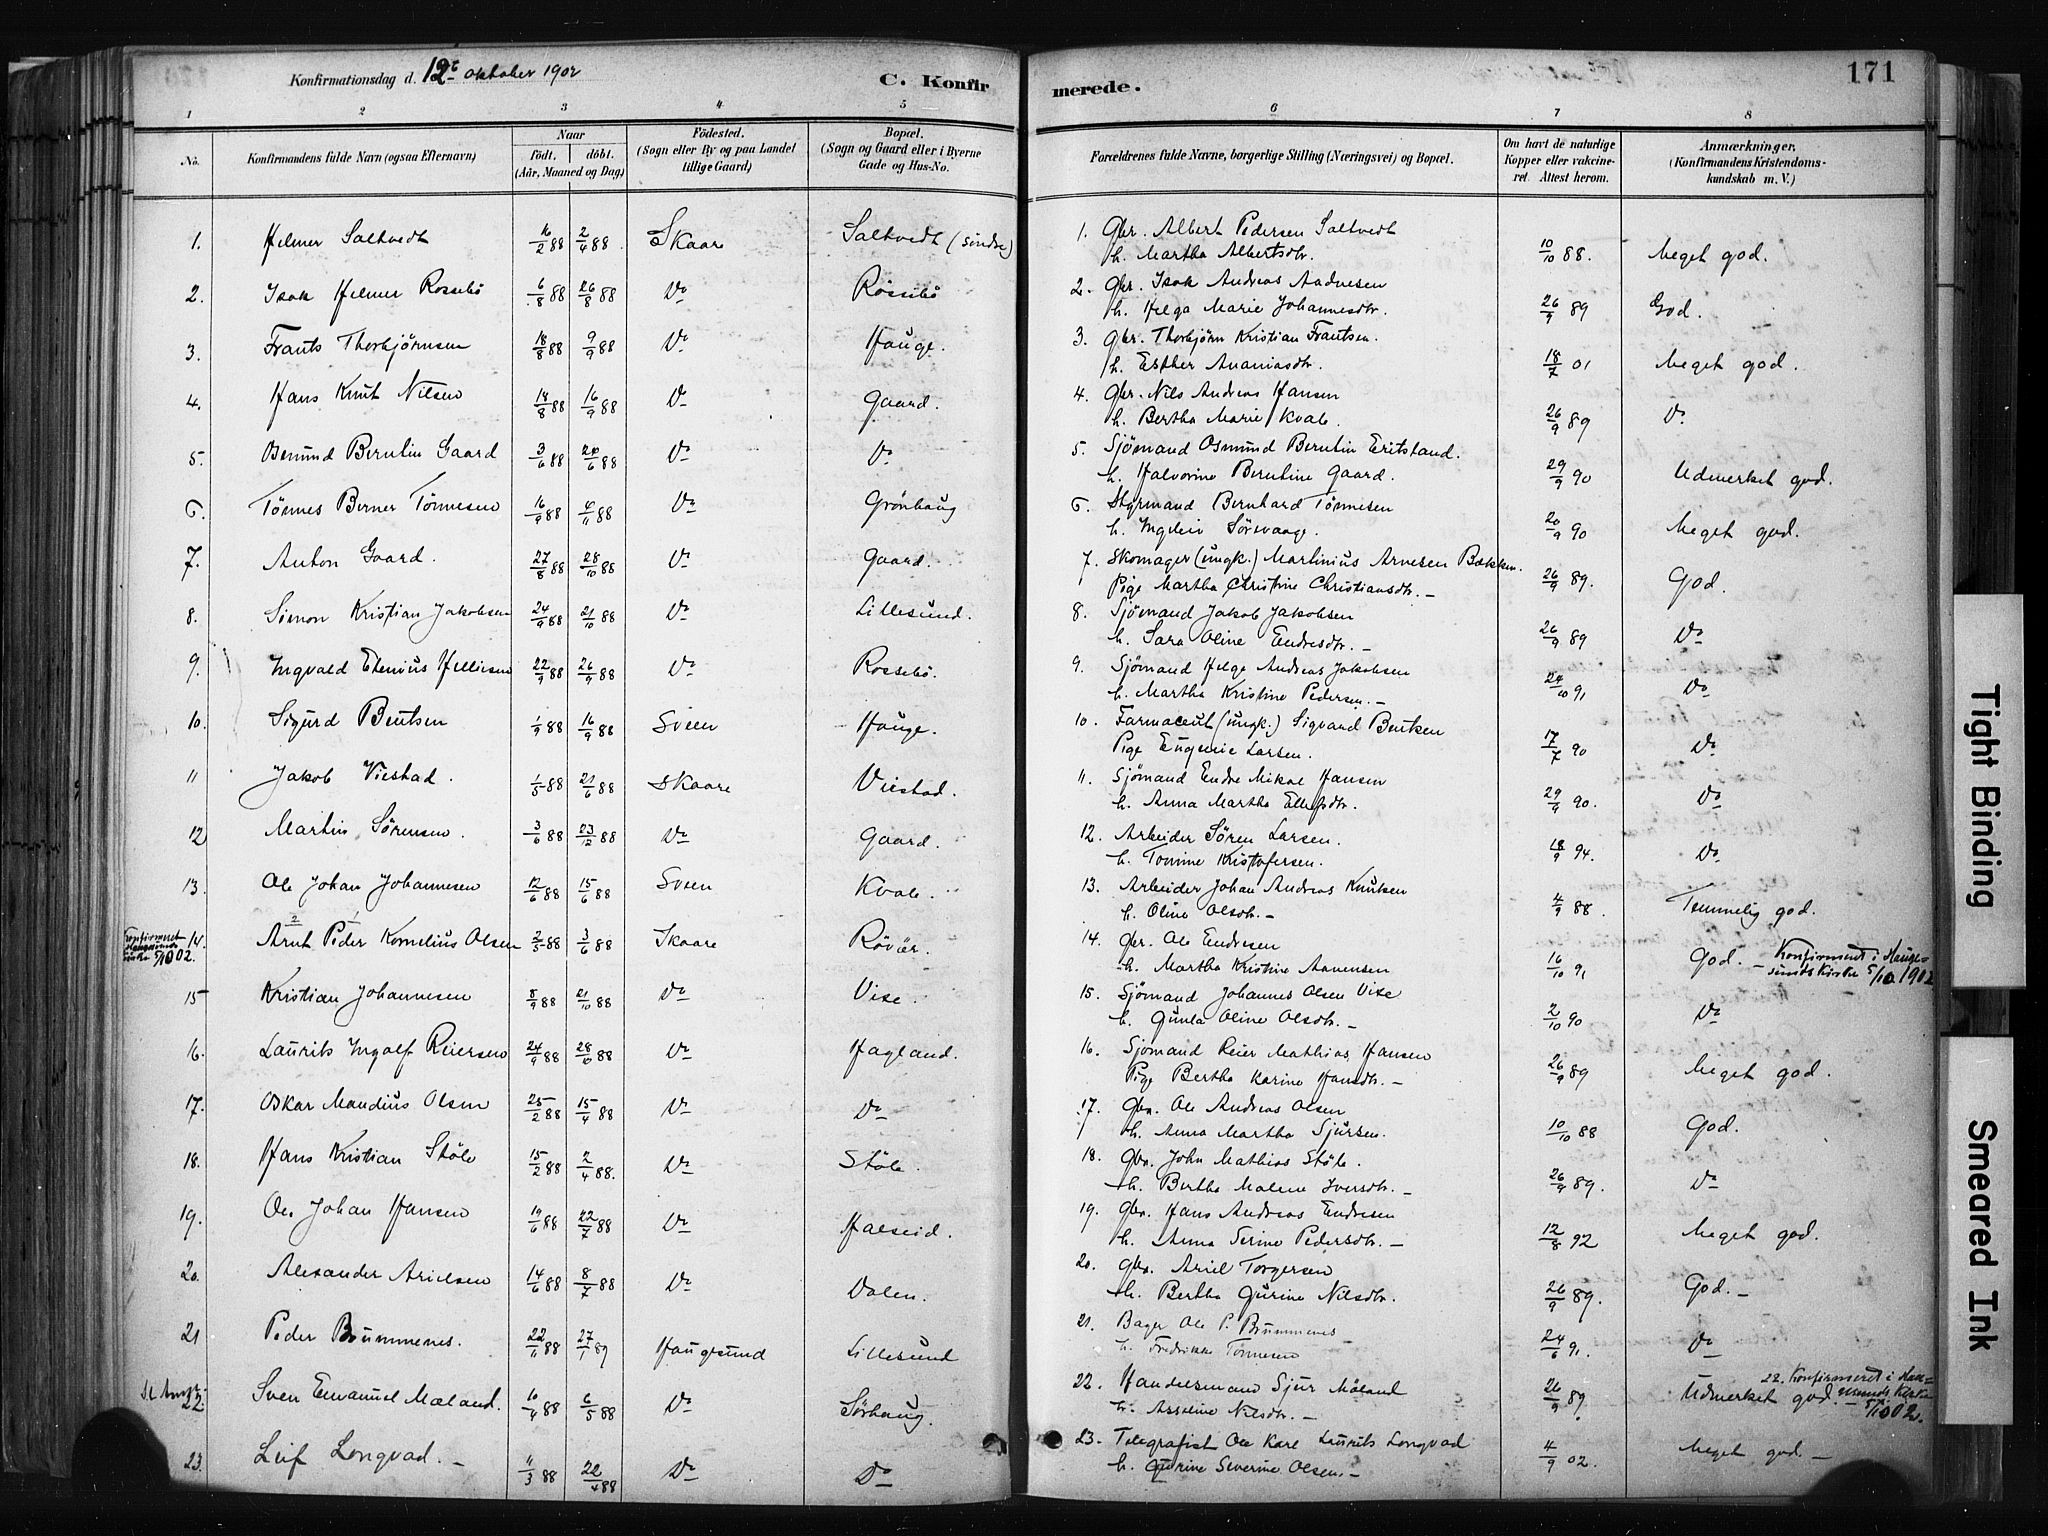 Konfirmationsdag d. 12te oktober 1902
C. Konfirmerede.
171
1 2 3 4 5 6 7 8
No. Konfirmandens fulde Navn (ogsaa Efternavn) Naar födt. döbt. (Aar, Maaned og Dag) Födested. (Sogn eller By og paa Landet tillige Gaard) Bopæl. (Sogn og Gaard eller i Byerne Gade og Hus-No. Forældrenes fulde Navne, borgerlige Stilling (Næringsvei) og Bopæl. Om havt de naturlige Kopper eller vaccineret. Attest herom. Anmærkninger, (Konfirmandens Kristendomskundskab m. V.)
1. Helmer Saltvedt 16/2 88 2/4 88. Skaare Saltvedt (søndre) 1. Gbr. Albert Pedersen Saltvedt
h. Martha Albertsdtr. 10/10 88. Meget god.
2. Isak Helmer Rossebö 6/8 88 26/8 88 Do Rössebö 2. Gbr. Isak Andreas Aadnesen
h. Helga Marie Johannesdtr. 26/9 89 God.
3. Frants Thorbjörnsen 18/8 88 9/9 88 Do Hauge. 3. Gbr. Thorbjörn Kristian Frantsen.
h. Esther Ananiasdtr. 18/7 01 Meget god.
4. Hans Knut Nilsen 14/8 88 16/9 88 Do Gaard. 4. Gbr. Nils Andreas Hansen
h. Bertha Marie Kvale. 26/9 89 Do
5. Osmund Berntin Gaard 3/6 88 24/6 88 Do Do 5. Sjömand Osmund Berntin Eritsland.
h. Halvorine Berntine Gaard. 29/9 90 Udmerket god.
6. Tönnes Berner Tönnesen 16/9 88 4/11 88 Do Grönhaug 6. Styrmand Bernhard Tönnesen
h. Ingeleiv Sörvaage. 20/9 90 Meget god.
7. Anton Gaard. 27/8 88 28/10 88 Do Gaard. 7. Skomager (ungk.) Martinius Arnesen Bakken.
Pige Martha Christine Christiansdtr. — 26/9 89. God.
8. Simon Kristian Jakobsen 24/9 88 21/10 88 Do Lillesund. 8. Sjömand Jakob Jakobsen
h. Sara Oline Endresdtr. — 26/9 89 Do
9. Ingvald Etenius Hellesen 22/9 88 26/9 88 Do Rossebö. 9. Sjömand Helge Andreas Jakobsen
h. Martha Kristine Pedersen. — 24/10 91 Do
10. Sigurd Bentsen 1/9 88 16/9 88 Sveen Hauge. 10. Farmaceut (ungk.) Sigvand Bentsen
Pige Eugenie Larsen. 17/7 90 Do
11 Jakob Viestad. 1/5 88 21/6 88 Skaare Viestad. 11. Sjömand Endre Mikal Hansen
h. Anna Martha Ellefsdtr. 29/9 90. Do
12 Martin Sörensen. 3/6 88 23/12 88 Do Gaard. 12. Arbeider Sören Larsen.
h. Tomine Kristofersen. 18/9 94. Do
13. Ole Johan Johannesen 12/6 88 15/6 88 Sveen Kvale. 13. Arbeider Johan Andreas Knutsen
h. Oline Olsdtr. — 4/9 88. Temmelig god.
Konfirmeret Haugesunds kirke 5/10 02. 14. Arnt Peder Kornelius Olsen 2/5 88 3/6 88 Skaare Rövær. 14. Gbr. Ole Endresen
h. Martha Kristine Aanensen 16/10 91 God. — Konfirmeret i Haugesunds Kirke 5/10 1902
15 Kristian Johannesen 8/9 88 21/10 88 Do Vixe. 15. Sjömand Johannes Olsen Vixe
h. Gunla Oline Olsdtr. — 2/10 90 Do
16. Laurits Ingolf Reiersen 24/9 88 28/10 88 Do Hagland. 16. Sjömand Reier Mathias Hansen
Pige Bertha Karine Hansdtr. — 26/9 89 Meget god.
17. Oskar Mandius Olsen 25/2 88 15/4 88 Do Do 17. Gbr. Ole Andreas Olsen
h. Anna Martha Sjursen. 10/10 88 God.
18. Hans Kristian Stöle 15/2 88 2/4 88. Do Stöle. 18. Gbr. John Mathias Stöle.
h. Bertha Malene Iversdtr. — 26/9 89. Do
19. Ole Johan Hansen 19/6 88 22/7 88 Do Halseid. 19. Gbr. Hans Andreas Endresen
h. Anna Serine Pedersdtr. — 12/8 92 Meget god.
20. Alexander Arielsen 14/6 88 8/7 88 Do Dalen. 20. Gbr. Ariel Torgersen
h. Bertha Gurine Nilsdtr. 26/9 89. God. —
21 Peder Brummenes. 22/11 88 27/1 89 Haugesund Lillesund 21. Bager Ole P. Brummenes
h. Fredrikke Tönnesen 24/6 91. Do
22. Sven Emanuel Mæland. 16/4 88 6/5 88 Do Sörhaug. 22. Handelsmand Sjur Mæland
h. Asseline Nilsdtr. — 26/9 89. Udmerket god. — 22. Konfirmeret i Haugesunds Kirke 5/10 02.
23. Leif Longvad. — 11/3 88 22/4 88 Do Do 23. Telegrafist Ole Karl Laurits Longvad
h. Gurine Severine Olsen. — 4/9 02. Meget god. —
Tight Binding
Smeared Ink